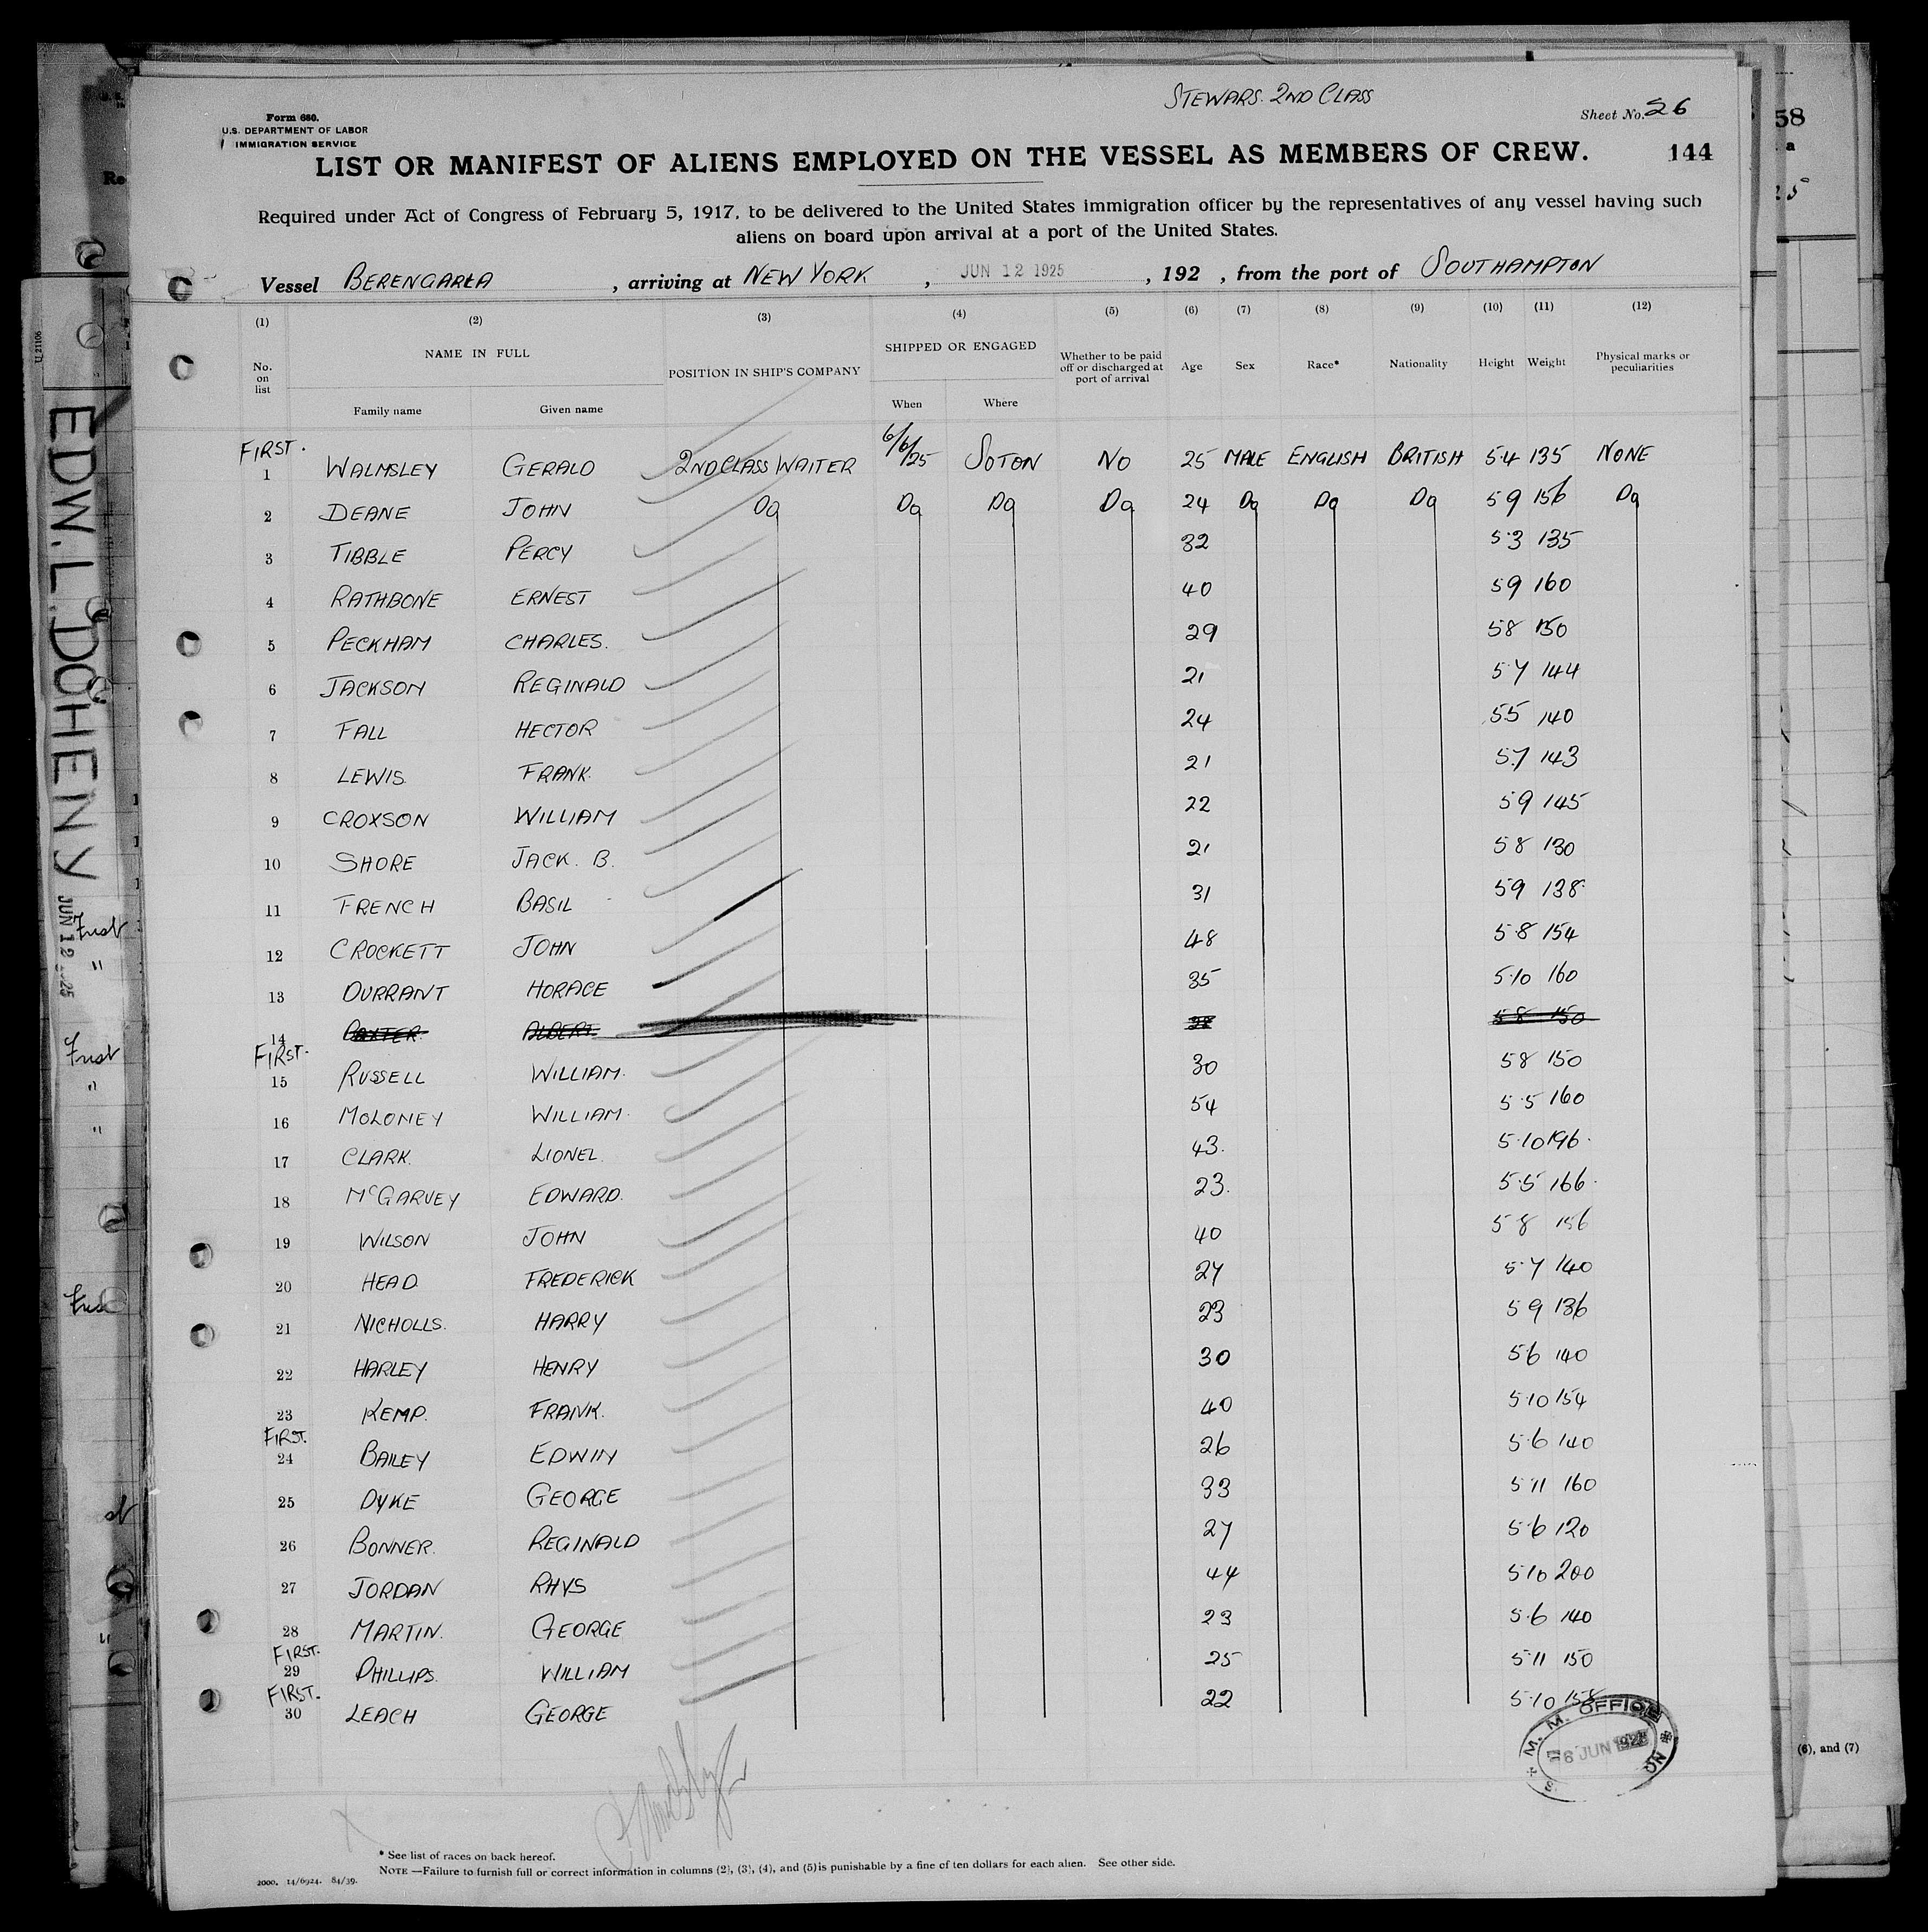 STEWARS. 2ND CLASS
Form 680.
U.S. DEPARTMENT OF LABOR
IMMIGRATION SERVICE
Sheet No. 26
LIST OR MANIFEST OF ALIENS EMPLOYED ON THE VESSEL AS MEMBERS OF CREW. 144
Required under Act of Congress of February 5, 1917, to be delivered to the United States immigration officer by the representatives of any vessel having such
aliens on board upon arrival at a port of the United States.
Vessel BERENGARIA , arriving at NEW YORK , JUN 12 1925 , 192 , from the port of SOUTHAMPTON
(1) (2) (3) (4) (5) (6) (7) (8) (9) (10) (11) (12)
No. on list NAME IN FULL POSITION IN SHIP'S COMPANY SHIPPED OR ENGAGED Whether to be paid off or discharged at port of arrival Age Sex Race* Nationality Height Weight Physical marks or peculiarities
Family name Given name When Where
FIRST.
1 WALMSLEY GERALD 2ND CLASS WAITER 6/6/25 SOTON NO 25 MALE ENGLISH BRITISH 5·4 135 NONE
2 DEANE JOHN Do Do Do Do 24 Do Do Do 5 9 156 Do
3 TIBBLE PERCY 32 5·3 135
4 RATHBONE ERNEST 40 5 9 160
5 PECKHAM CHARLES. 29 5 8 150
6 JACKSON REGINALD 21 5·7 144
7 FALL HECTOR 24 5 5 140
8 LEWIS FRANK. 21 5·7 143
9 CROXSON WILLIAM 22 5 9 145
10 SHORE JACK. B. 21 5 8 130
11 FRENCH BASIL 31 5 9 138
12 CROCKETT JOHN 48 5·8 154
13 DURRANT HORACE 35 5·10 160
14 BAXTER. ALBERT. 28 5 8 150
FIRST.
15 RUSSELL WILLIAM. 30 5 8 150
16 MOLONEY WILLIAM. 54 5·5 160
17 CLARK. LIONEL. 43. 5·10 196.
18 McGARVEY EDWARD. 23. 5·5 166.
19 WILSON JOHN 40 5 8 156
20 HEAD FREDERICK 27 5·7 140
21 NICHOLLS. HARRY 23 5 9 136
22 HARLEY HENRY 30 5 6 140
23 KEMP. FRANK. 40 5·10 154
FIRST.
24 BAILEY EDWIN 26 5·6 140
25 DYKE GEORGE 33 5 11 160
26 BONNER. REGINALD 27 5·6 120
27 JORDAN RHYS 44 5·10 200
28 MARTIN. GEORGE 23 5·6 140
FIRST.
29 PHILLIPS. WILLIAM 25 5·11 150
FIRST.
30 LEACH GEORGE 22 5·10 158
M. M. OFFICE
6 JUN 1925
* See list of races on back hereof.
NOTE —Failure to furnish full or correct information in columns (2), (3), (4), and (5) is punishable by a fine of ten dollars for each alien. See other side.
2000. 14/6924. 84/39.
EDW. L. DOHENY
JUN 12 1925
U 21106
First
"
First
"
"
58
(6), and (7)